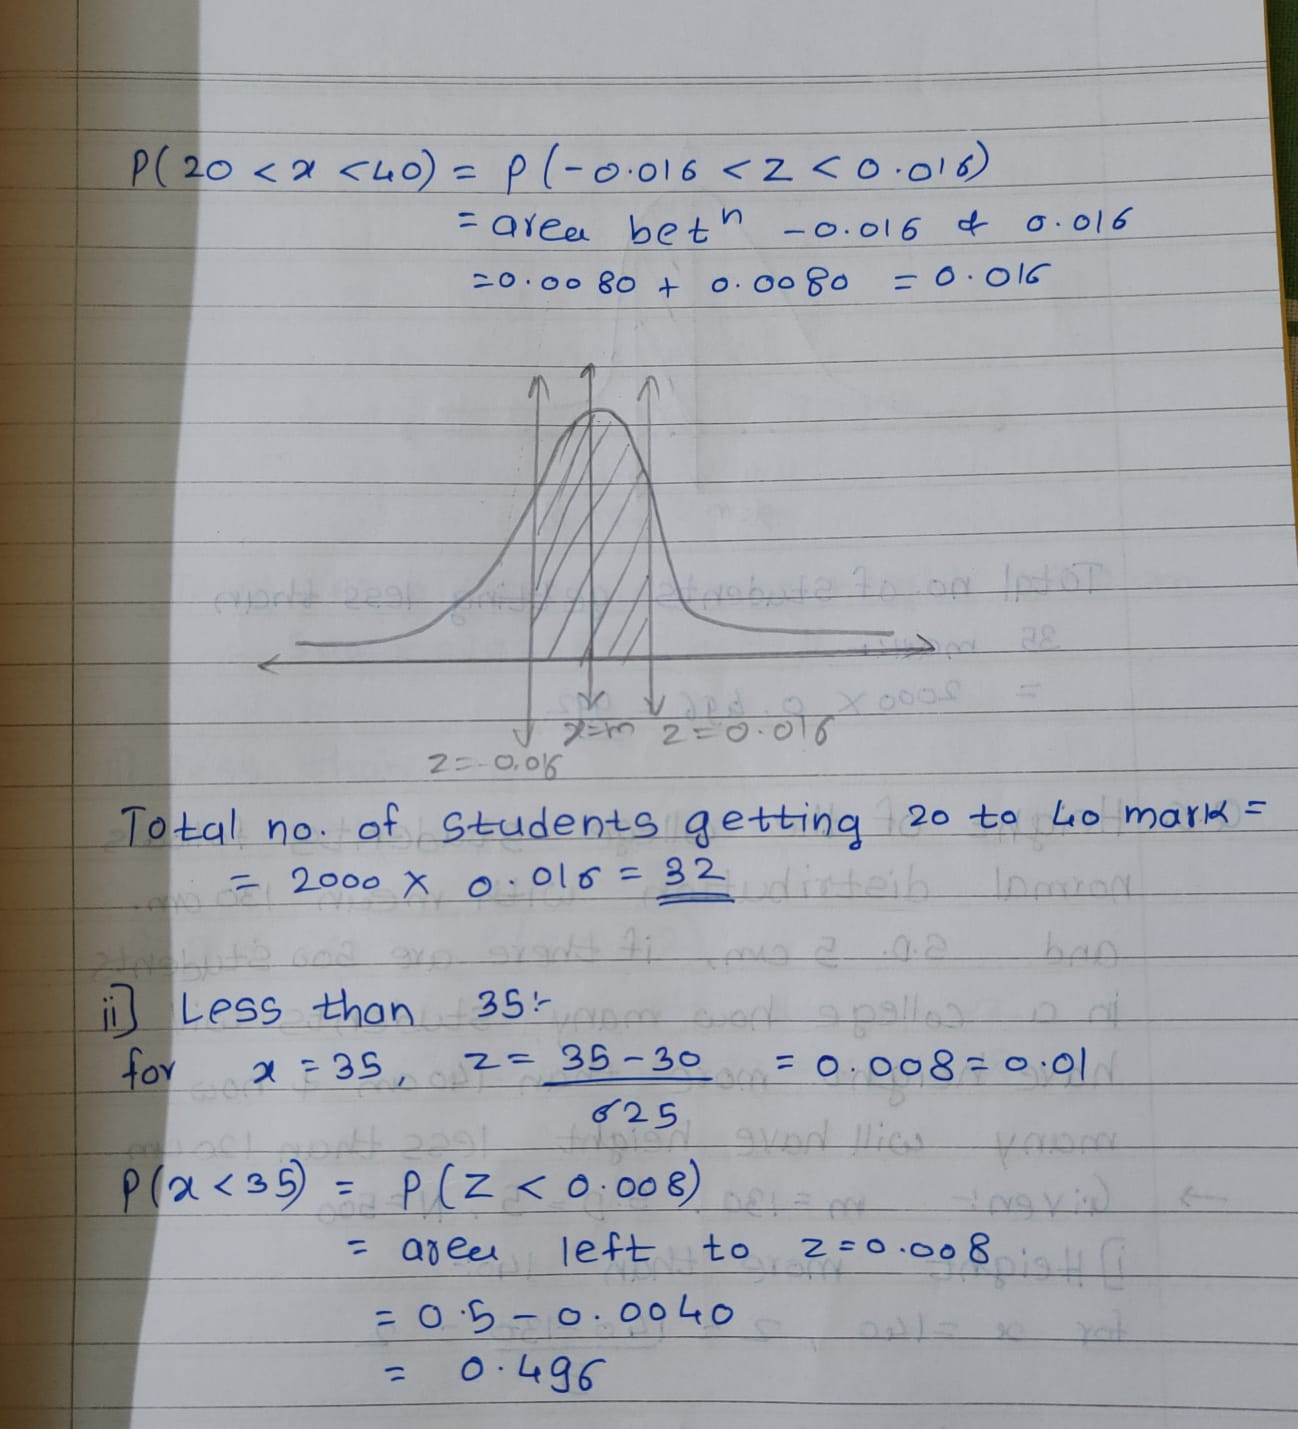 P(20 < x < 40) = P(-0.016 < Z < 0.016)
= area betⁿ -0.016 & 0.016
= 0.0080 + 0.0080 = 0.016
x=m z=0.016
z=-0.016
Total no. of students getting 20 to 40 mark =
= 2000 × 0.016 = 32
ii] Less than 35:-
for x = 35, z = 35-30 / 625 = 0.008 = 0.01
P(x < 35) = P(Z < 0.008)
= area left to z=0.008
= 0.5 - 0.0040
= 0.496